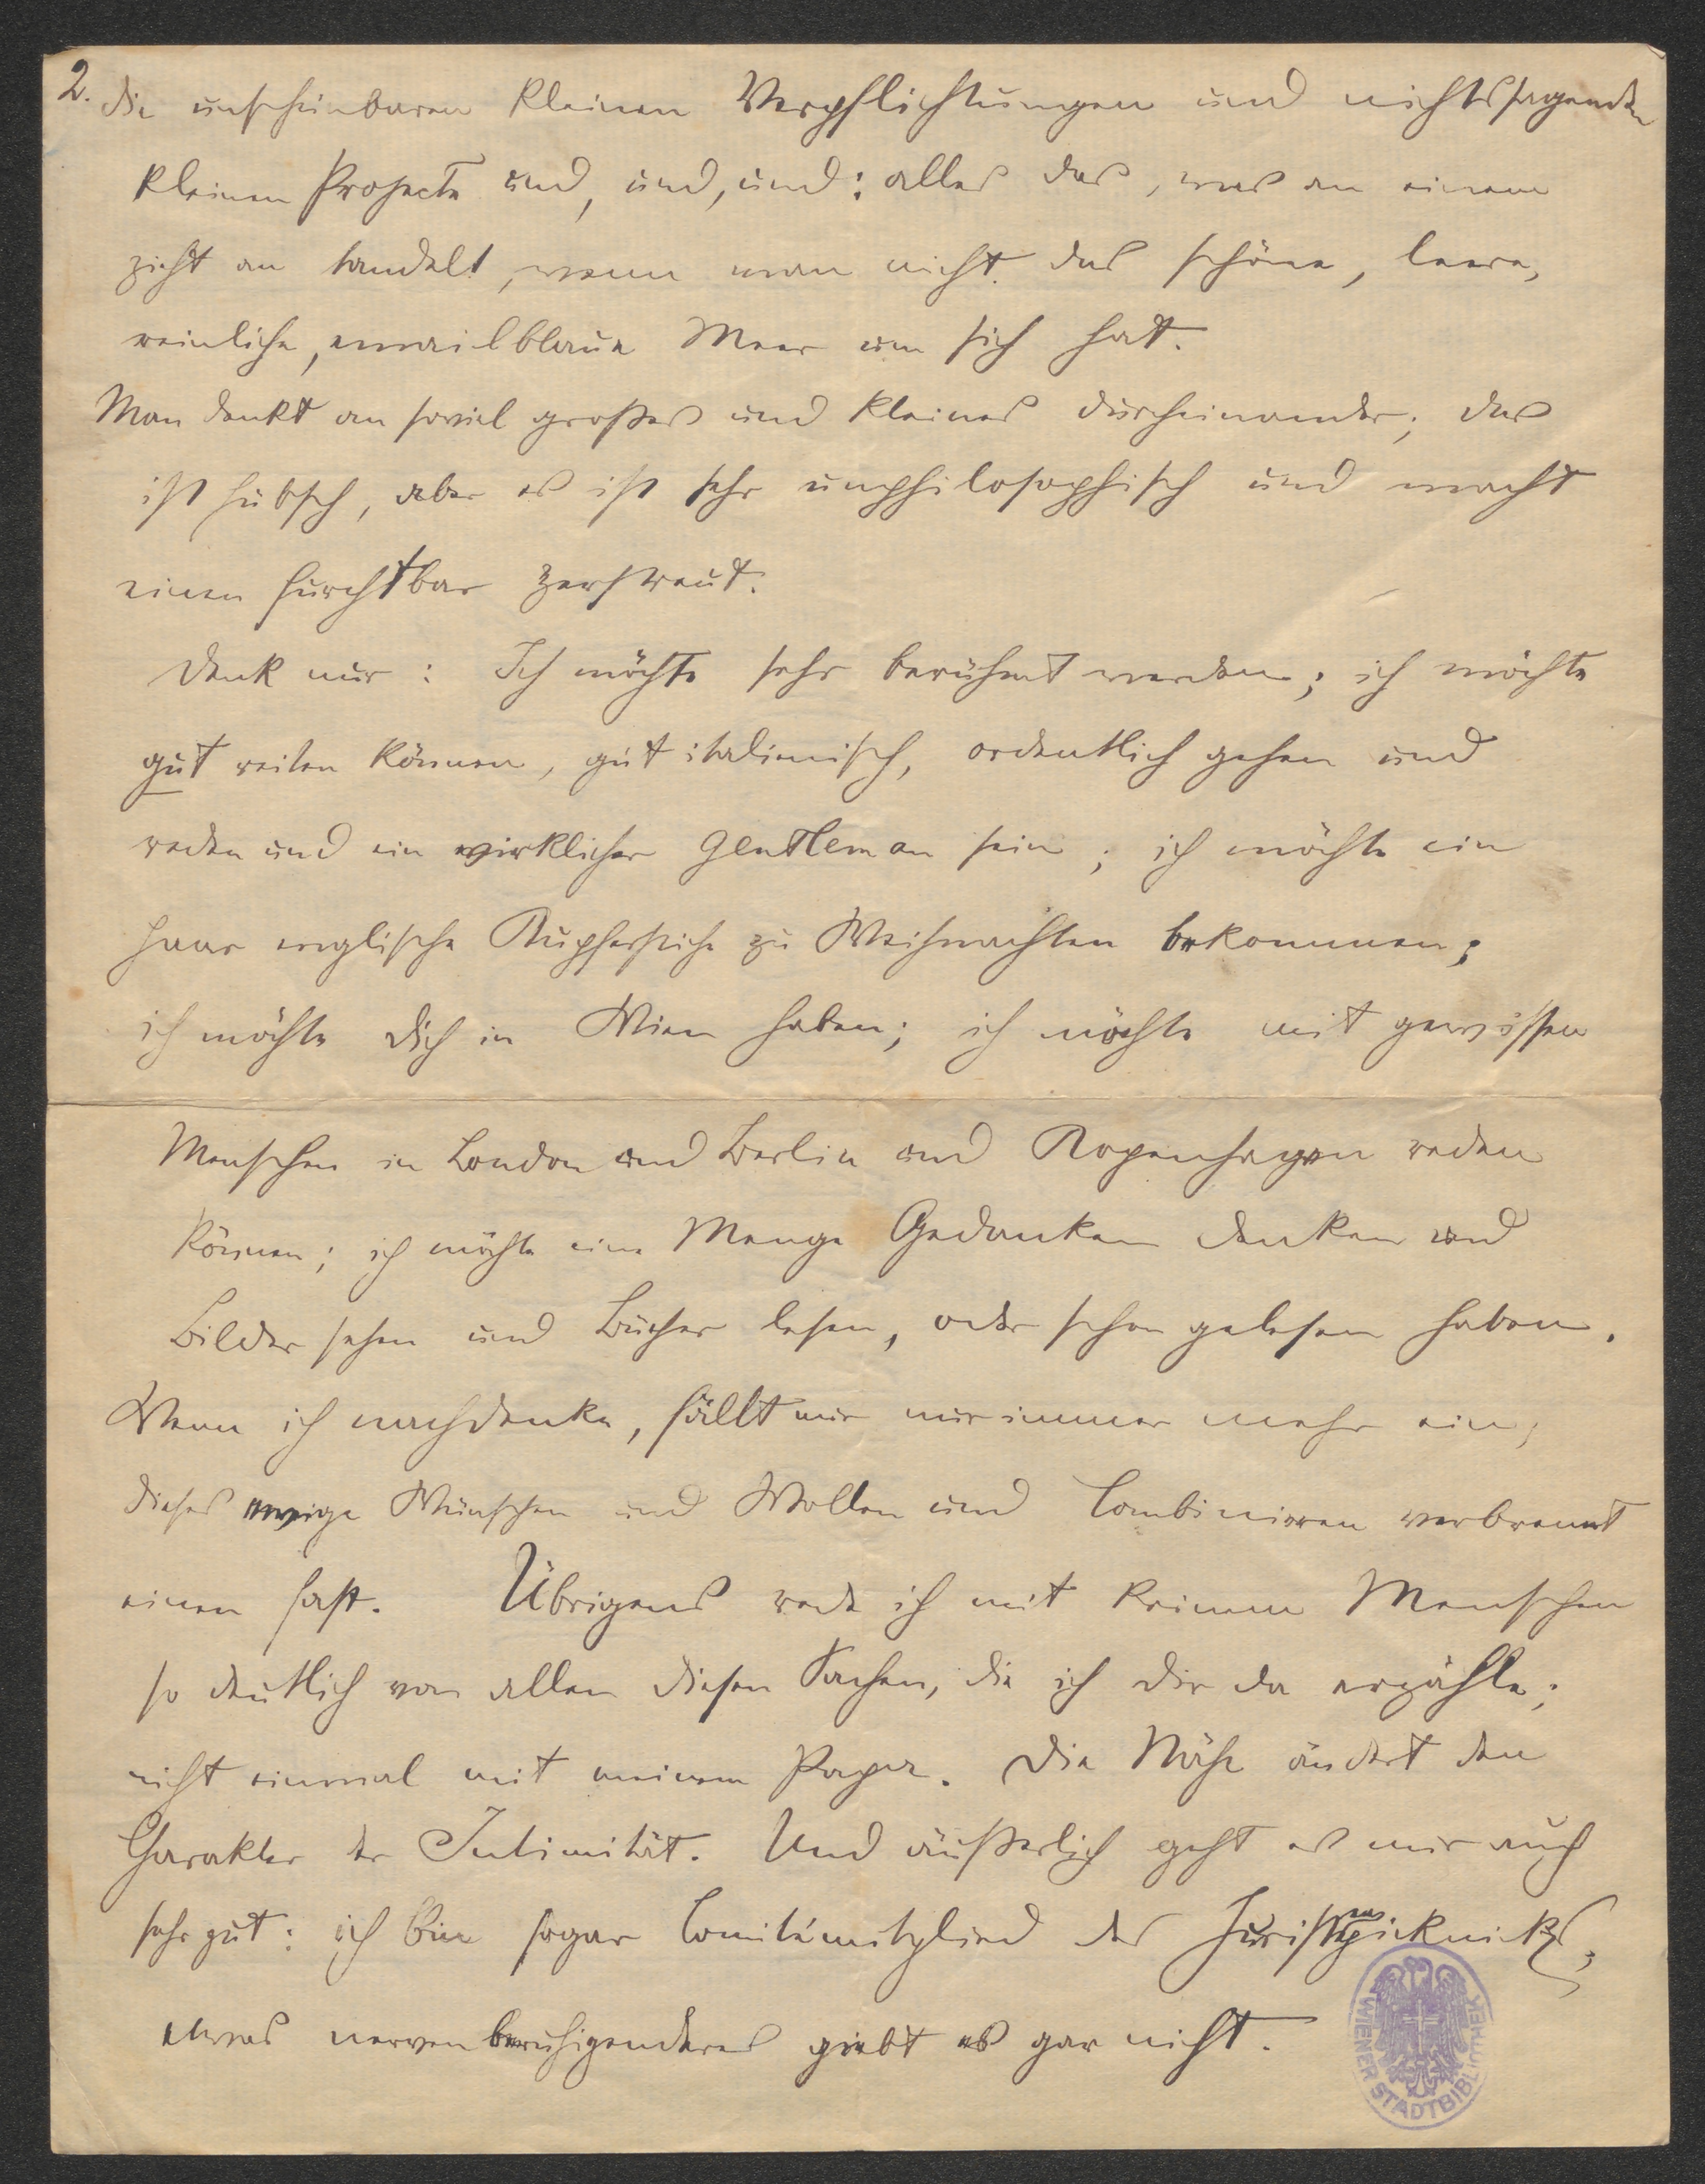 2. die unscheinbaren kleinen Verpflichtungen und nichtssagenden
kleinen Projecte und, und, und: alles das, was an einem
zieht an tandelt, wenn man nicht das schöne, leere,
reinliche, emailblaue Meer um sich hat.
Man denkt an soviel großes und kleines durcheinander; das
ist hübsch, aber es ist sehr unphilosophisch und macht
einen furchtbar zerstreut.
Denk nur: Ich möchte sehr berühmt werden; ich möchte
gut reiten können, gut italienisch, ordentlich gehen und
reden und ein wirklicher Gentleman sein; ich möchte ein
paar englische Kupferstiche zu Weihnachten bekommen;
ich möchte Dich in Wien haben; ich möchte mit gewissen
Menschen in London und Berlin und Kopenhagen reden
können; ich möchte eine Menge Gedanken denken und
Bilder sehen und Bücher lesen, oder schon gelesen haben.
Wenn ich nachdenke, fällt mir nur immer mehr ein;
dieses ewige Wünschen und Wollen und Combinieren verbrennt
einen fast. Übrigens rede ich mit keinem Menschen
so deutlich von allen diesen Sachen, die ich Dir da erzähle;
nicht einmal mit meinem Papa. Die Nähe ändert den
Charakter der Intimität. Und äußerlich geht es mir auch
sehr gut: ich bin sogar Comitémitglied des Juristenpicknicks;
etwas nervenberuhigenderes giebt es gar nicht.
WIENER STADTBIBLIOTHEK